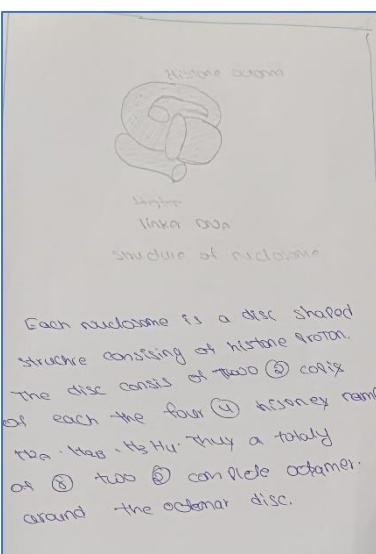 Histone octomer
linkr DNA
structure of nuclosome
Each nuclosome is a disc shaped
structure consising of histone proton.
The disc consis of two ② copis
of each the four ④ hisoney name
H2A. H2B. H3 H4. Thuy a totaly
of ⑧ two ② complete octamer.
around the octomar disc.